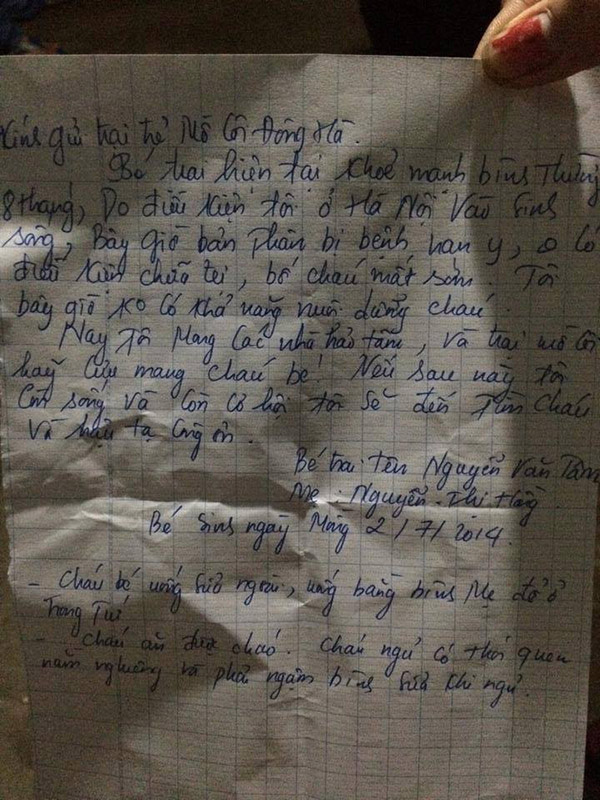 Kính gửi trại trẻ Mồ Côi Đông Hà.
Bé trai hiện tại khoẻ mạnh bình thường
8 tháng, Do điều kiện tôi ở Hà Nội vào sinh
sống, Bây giờ bản thân bị bệnh nan y, o có
điều kiện chữa trị, bố cháu mất sớm. Tôi
bây giờ ko có khả năng nuôi dưỡng cháu.
Nay tôi mong các nhà hảo tâm, và trại mồ côi
hãy cưu mang cháu bé! Nếu sau này tôi
còn sống và còn cơ hội tôi sẽ đến tìm cháu
và hậu tạ công ơn.
Bé trai tên Nguyễn Văn Tâm
Mẹ: Nguyễn Thị Hồng
Bé sinh ngày Mồng 2/7/2014.
- Cháu bé uống sữa ngoài, uống bằng bình Mẹ để ở
Trong Túi
- Cháu ăn được cháo. Cháu ngủ có thói quen
nằm nghiêng và phải ngậm bình sữa khi ngủ.